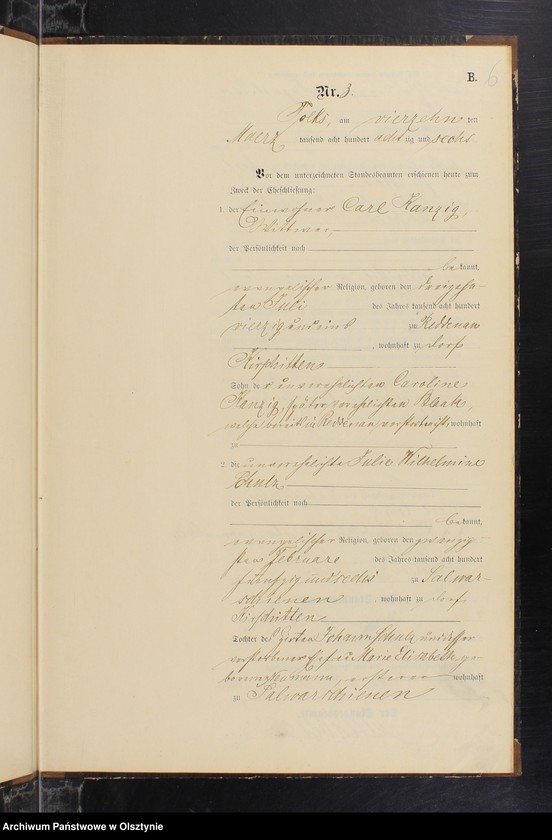 B. 6
Nr. 3.
Tolks, am vierzehn ten
Maerz tausend acht hundert achtzig und sechs
Vor dem unterzeichneten Standesbeamten erschienen heute zum
Zweck der Eheschließung:
1. der Einwohner Carl Kanzig,
Wittwer,
der Persönlichkeit nach
bekannt,
evangelischer Religion, geboren den dreizehn-
ten Juli des Jahres tausend acht hundert
vierzig und eins zu Reddenau
, wohnhaft zu Dorf
Kirschitten
Sohn der unverehelichten Caroline
Kanzig, später verehelichten
welche bereits in Reddenau verstorben ist wohnhaft
zu
2. die unverehelichte Julie Wilhelmine
Schulz
der Persönlichkeit nach
bekannt,
evangelischer Religion, geboren den zwanzig
sten Februar des Jahres tausend acht hundert
fünfzig und sechs zu Salwar-
schienen, wohnhaft zu Dorf
Kirschitten
Tochter des Johann Schulz und dessen
verstorbener Ehefrau Marie Elisabeth, ge-
borenen ersterer wohnhaft
zu Salwarschienen
Archiwum Państwowe w Olsztynie